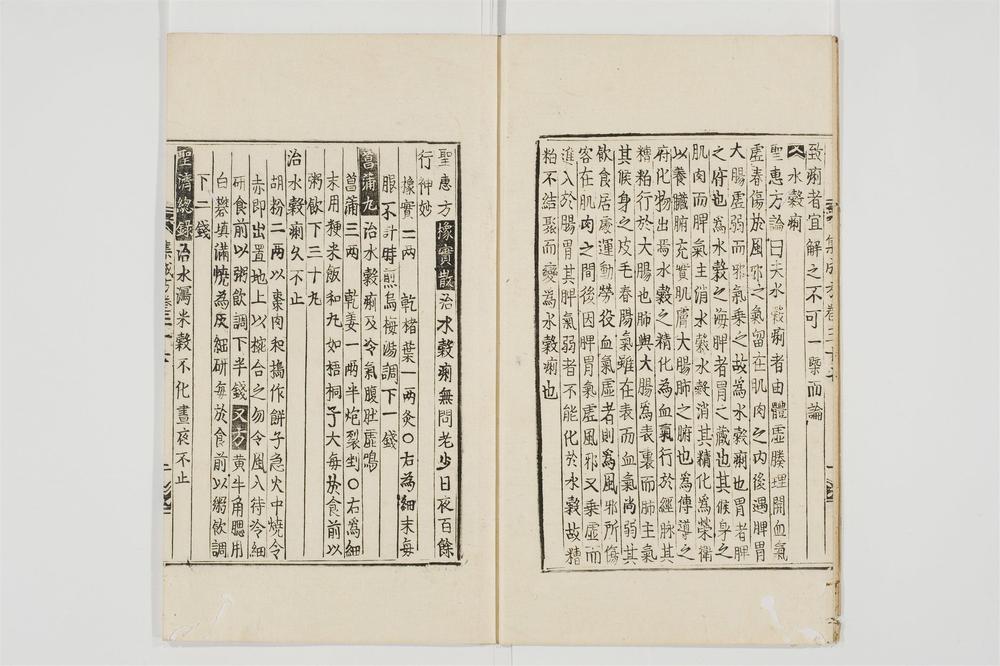 致痢者宜解之不可一槩而論
水穀痢
聖惠方論曰夫水穀痢者由體虛腠理開血氣
虛春傷於風邪之氣留在肌肉之內後遇脾胃
大腸虛弱而邪氣乗之故爲水穀痢也胃者脾
之府也爲水穀之海脾者胃之藏也其候身之
肌肉而脾氣主消水穀水穀消其精化爲榮衛
以養臓腑充實肌膚大腸肺之腑也爲傳導之
府化物出焉水穀之精化爲血氣行於經脉其
糟粕行於大腸也肺與大腸爲表裏而肺主氣
其候身之皮毛春陽氣雖在表而血氣尚弱其
飲食居處運動勞役血氣虛者則爲風邪所傷
客在肌肉之間後因脾胃氣虛風邪又乗虛而
進入於腸胃其脾氣弱者不能化於水穀故糟
粕不結聚而變爲水穀痢也
聖惠方橡實散治水穀痢無問老少日夜百餘
行神妙
橡實二两　乾楮葉一两炙○右為細末每
服不計時煎烏梅湯調下一錢
菖蒲丸治水穀痢及冷氣腹肚虛鳴
菖蒲三两　乾姜一两半炮裂剉○右爲細
末用粳米飯和丸如梧桐子大每於食前以
粥飲下三十丸
治水穀痢久不止
胡粉二两以棗肉和搗作餅子急火中燒令
赤即出置地上以椀合之勿令風入待冷細
研食前以粥飲調下半錢又方黄牛角䚡用
白礬填滿燒為灰細研每於食前以粥飲調
下二錢
聖濟總録治水瀉米穀不化晝夜不止